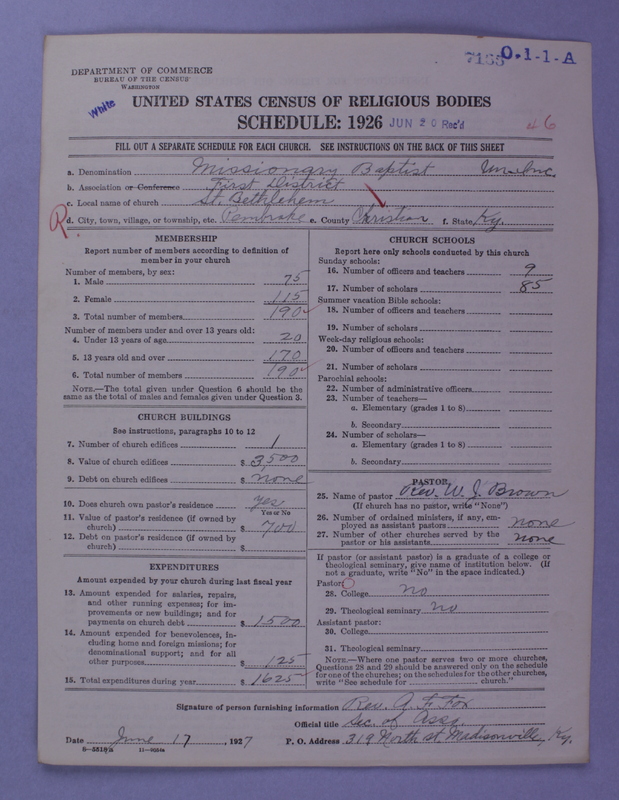 7155 0-1-1-A
DEPARTMENT OF COMMERCE
BUREAU OF THE CENSUS
WASHINGTON
White
UNITED STATES CENSUS OF RELIGIOUS BODIES
SCHEDULE: 1926 JUN 20 Rec'd
46
FILL OUT A SEPARATE SCHEDULE FOR EACH CHURCH. SEE INSTRUCTIONS ON THE BACK OF THIS SHEET
a. Denomination Missionary Baptist Un-Inc.
b. Association or Conference First District
c. Local name of church St. Bethlehem
R d. City, town, village, or township, etc. Pembroke e. County Christian f. State Ky.
MEMBERSHIP
Report number of members according to definition of
member in your church
Number of members, by sex:
1. Male 75
2. Female 115
3. Total number of members 190
Number of members under and over 13 years old:
4. Under 13 years of age 20
5. 13 years old and over 170
6. Total number of members 190
NOTE.—The total given under Question 6 should be the
same as the total of males and females given under Question 3.
CHURCH BUILDINGS
See instructions, paragraphs 10 to 12
7. Number of church edifices 1
8. Value of church edifices $ 3,500
9. Debt on church edifices $ none
10. Does church own pastor's residence yes
Yes or No
11. Value of pastor's residence (if owned by
church) $ 700
12. Debt on pastor's residence (if owned by
church) $
EXPENDITURES
Amount expended by your church during last fiscal year
13. Amount expended for salaries, repairs,
and other running expenses; for im-
provements or new buildings; and for
payments on church debt $ 1500
14. Amount expended for benevolences, in-
cluding home and foreign missions; for
denominational support; and for all
other purposes $ 125
15. Total expenditures during year $ 1625
CHURCH SCHOOLS
Report here only schools conducted by this church
Sunday schools:
16. Number of officers and teachers 9
17. Number of scholars 85
Summer vacation Bible schools:
18. Number of officers and teachers
19. Number of scholars
Week-day religious schools:
20. Number of officers and teachers
21. Number of scholars
Parochial schools:
22. Number of administrative officers
23. Number of teachers—
a. Elementary (grades 1 to 8)
b. Secondary
24. Number of scholars—
a. Elementary (grades 1 to 8)
b. Secondary
PASTOR
25. Name of pastor Rev. W. J. Brown
(If church has no pastor, write "None")
26. Number of ordained ministers, if any, em-
ployed as assistant pastors none
27. Number of other churches served by the
pastor or his assistants none
If pastor (or assistant pastor) is a graduate of a college or
theological seminary, give name of institution below. (If
not a graduate, write "No" in the space indicated.)
Pastor:
28. College no
29. Theological seminary no
Assistant pastor:
30. College
31. Theological seminary
NOTE.—Where one pastor serves two or more churches,
Questions 28 and 29 should be answered only on the schedule
for one of the churches; on the schedules for the other churches,
write "See schedule for church."
Signature of person furnishing information Rev. A. F. Fox
Official title Sec. of Asso.
Date June 17, 1927 P. O. Address 319 North st. Madisonville, Ky.